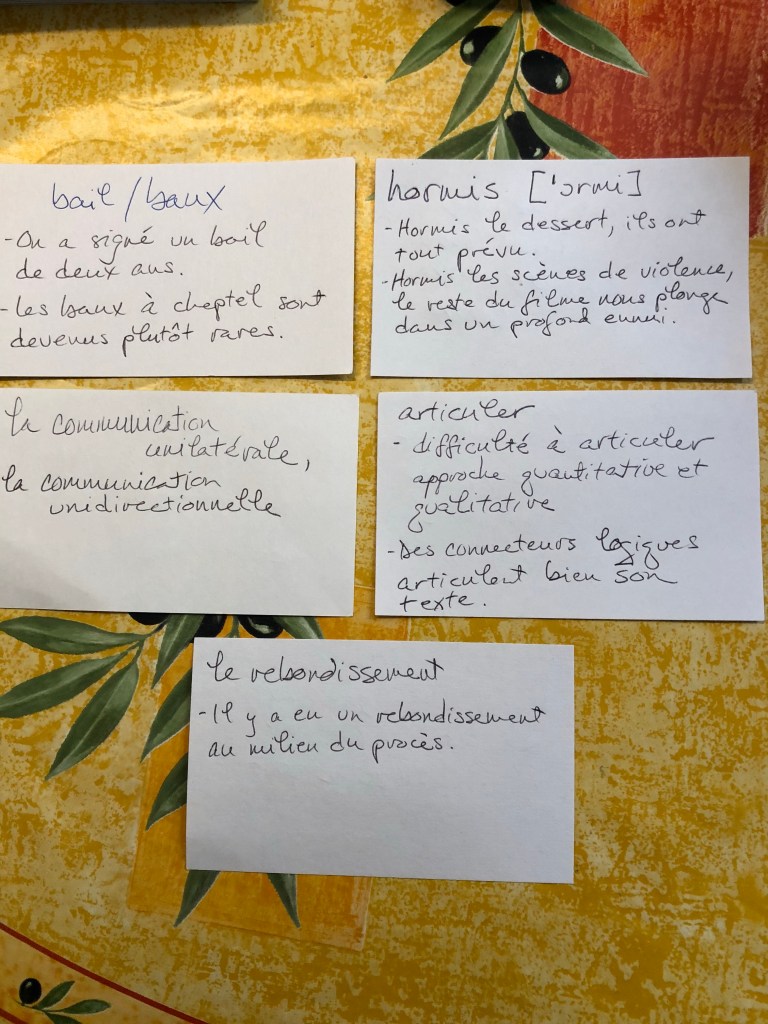 bail / baux
- On a signé un bail
de deux ans.
- Les baux à cheptel sont
devenus plutôt rares.
hormis ['ɔrmi]
- Hormis le dessert, ils ont
tout prévu.
- Hormis les scènes de violence,
le reste du filme nous plonge
dans un profond ennui.
la communication
unilatérale,
la communication
unidirectionnelle
articuler
- difficulté à articuler
approche quantitative et
qualitative
- Des connecteurs logiques
articulent bien son
texte.
le rebondissement
- Il y a eu un rebondissement
au milieu du procès.